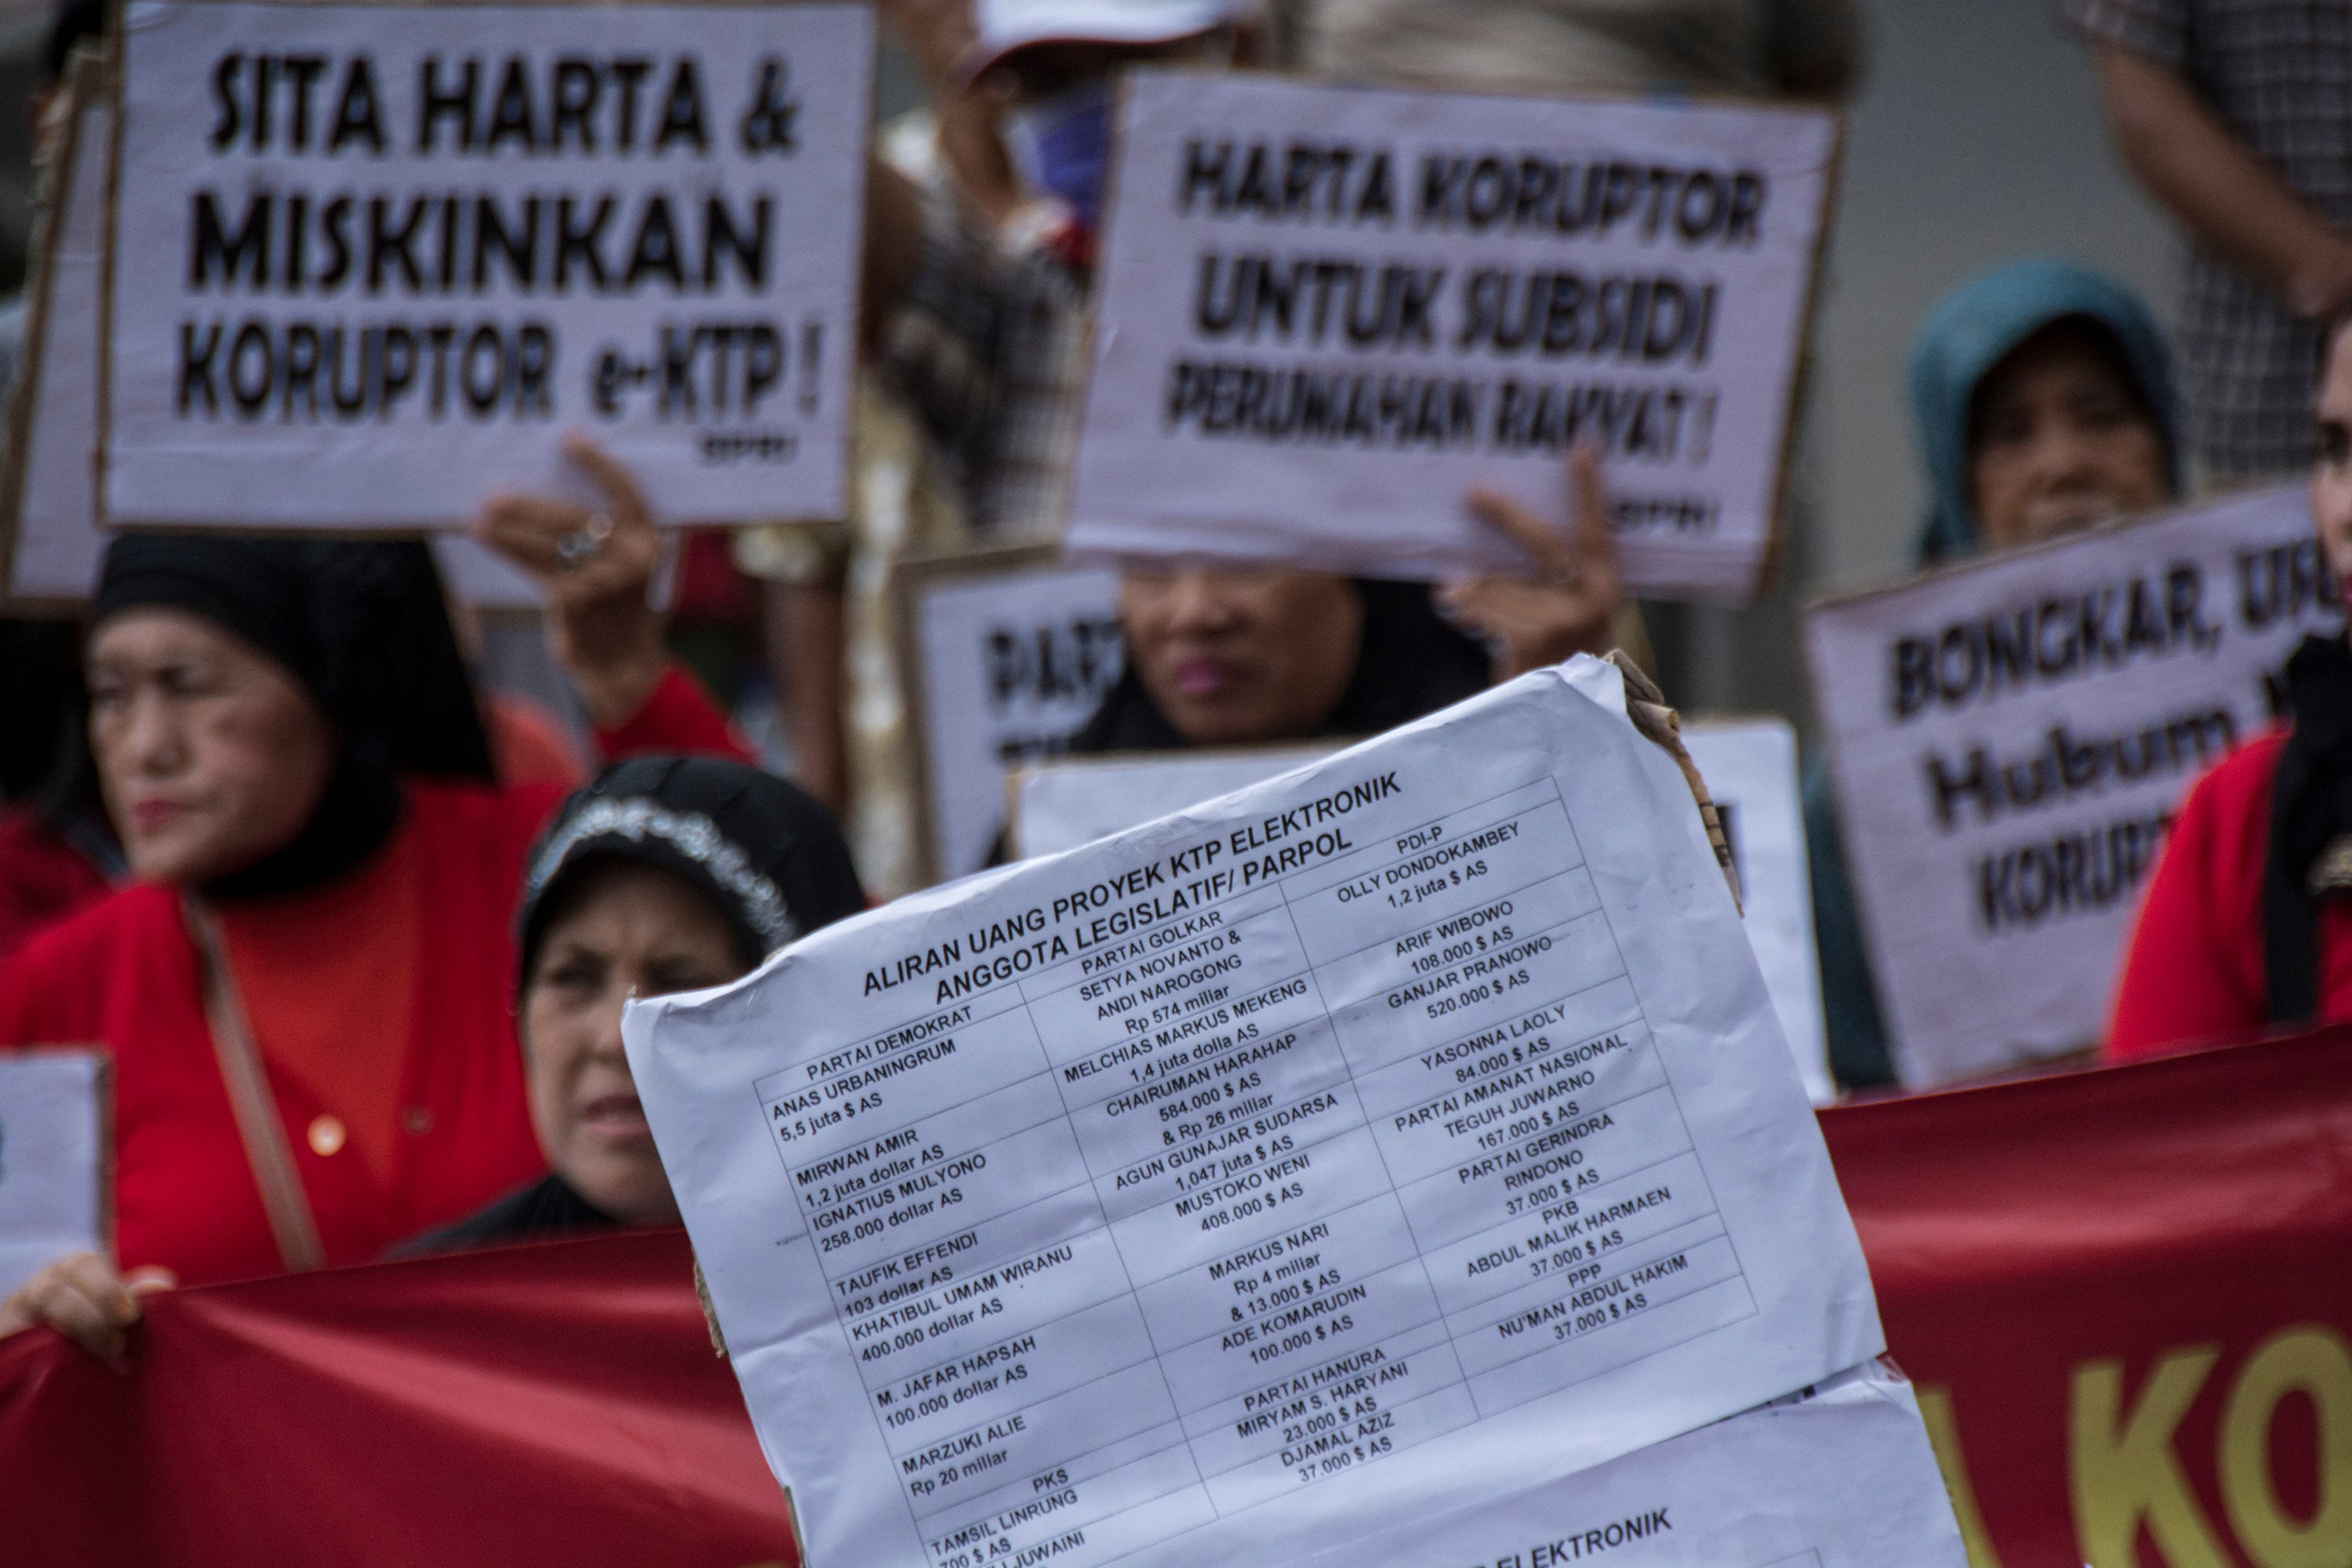 SITA HARTA &
MISKINKAN
KORUPTOR e-KTP !
SPRI
HARTA KORUPTOR
UNTUK SUBSIDI
PERUMAHAN RAKYAT !
SPRI
BONGKAR,
Hubum
ALIRAN UANG PROYEK KTP ELEKTRONIK
ANGGOTA LEGISLATIF/ PARPOL
PARTAI DEMOKRAT
ANAS URBANINGRUM
5,5 juta $ AS
MIRWAN AMIR
1,2 juta dollar AS
IGNATIUS MULYONO
258.000 dollar AS
TAUFIK EFFENDI
103 dollar AS
KHATIBUL UMAM WIRANU
400.000 dollar AS
M. JAFAR HAPSAH
100.000 dollar AS
MARZUKI ALIE
Rp 20 miliar
PKS
TAMSIL LINRUNG
700 $ AS
JUWAINI
PARTAI GOLKAR
SETYA NOVANTO &
ANDI NAROGONG
Rp 574 miliar
MELCHIAS MARKUS MEKENG
1,4 juta dolla AS
CHAIRUMAN HARAHAP
584.000 $ AS
& Rp 26 miliar
AGUN GUNAJAR SUDARSA
1,047 juta $ AS
MUSTOKO WENI
408.000 $ AS
MARKUS NARI
Rp 4 miliar
& 13.000 $ AS
ADE KOMARUDIN
100.000 $ AS
PARTAI HANURA
MIRYAM S. HARYANI
23.000 $ AS
DJAMAL AZIZ
37.000 $ AS
PDI-P
OLLY DONDOKAMBEY
1,2 juta $ AS
ARIF WIBOWO
108.000 $ AS
GANJAR PRANOWO
520.000 $ AS
YASONNA LAOLY
84.000 $ AS
PARTAI AMANAT NASIONAL
TEGUH JUWARNO
167.000 $ AS
PARTAI GERINDRA
RINDONO
37.000 $ AS
PKB
ABDUL MALIK HARMAEN
37.000 $ AS
PPP
NU'MAN ABDUL HAKIM
37.000 $ AS
ELEKTRONIK
KO